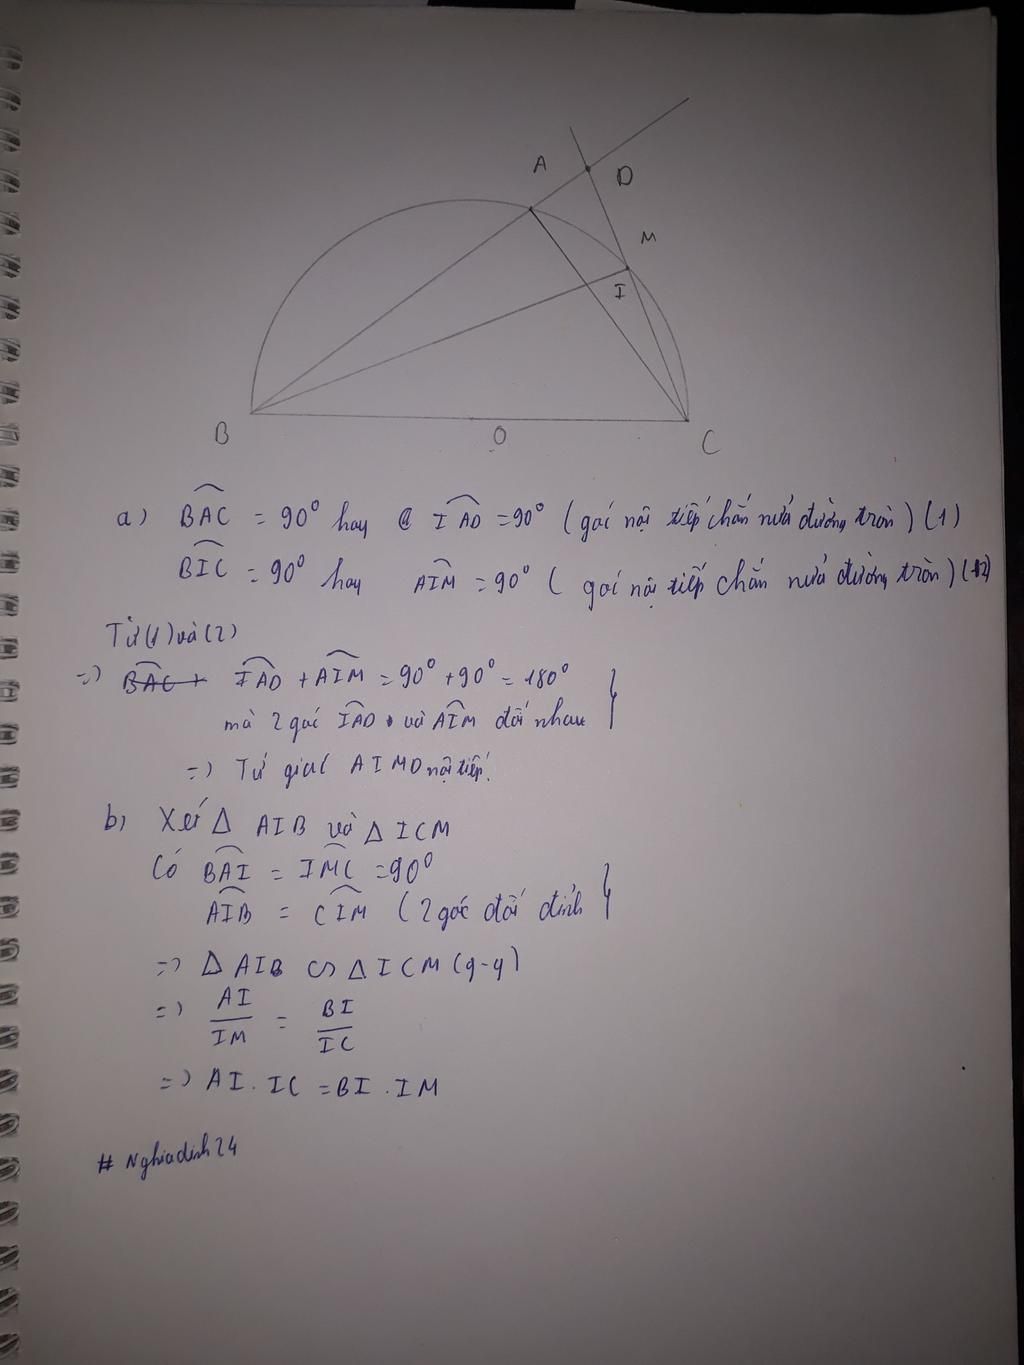 A
D
M
I
B
O
C
a) BAC = 90° hay IAD = 90° (goí nội tiếp chắn nửả đường tròn) (1)
BIC = 90° hay AIM = 90° (goí nội tiếp chắn nửả đường tròn) (2)
Từ (1) và (2)
=) BAC + IAD + AIM = 90° + 90° = 180°
mà 2 goć IAD và AIM đối nhau
=) Tứ giać AIMD nội tiếp.
b) Xét Δ AIB và Δ ICM
Có BAI = IMC = 90°
AIB = CIM (2 goć đối đỉnh
=) Δ AIB ∽ Δ ICM (g-g)
=) AI/IM = BI/IC
=) AI . IC = BI . IM
# Nghiadinh24